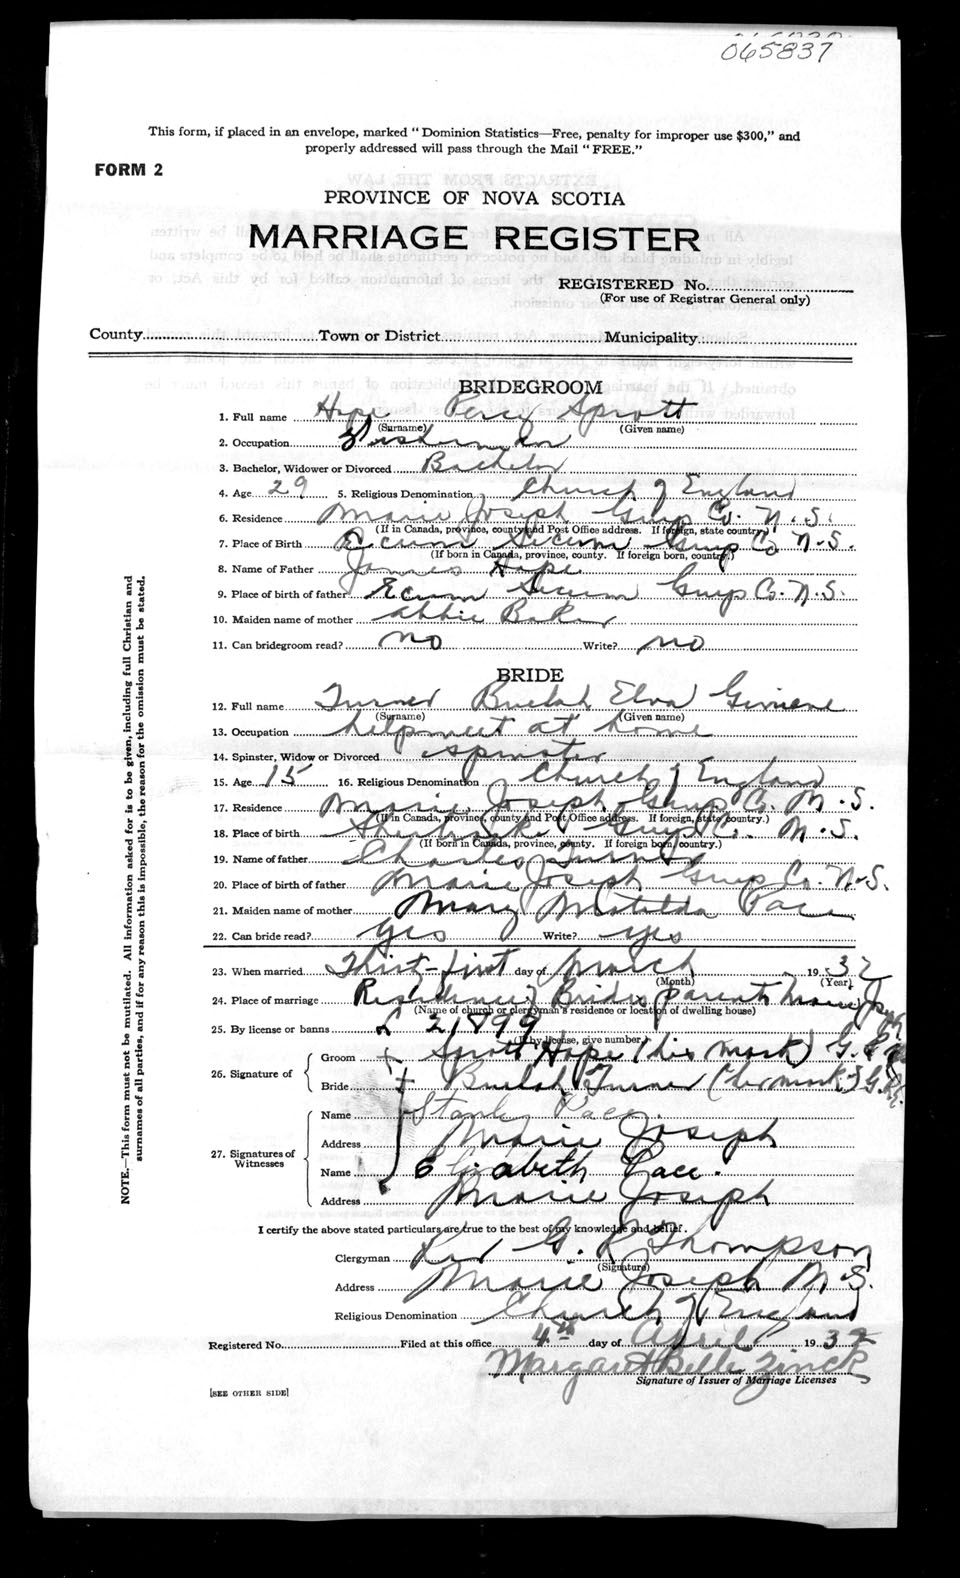 065837
This form, if placed in an envelope, marked "Dominion Statistics—Free, penalty for improper use $300," and
properly addressed will pass through the Mail "FREE."
FORM 2
PROVINCE OF NOVA SCOTIA
MARRIAGE REGISTER
REGISTERED No.
(For use of Registrar General only)
County Town or District Municipality
BRIDEGROOM
1. Full name Hope Percy Sprott
(Surname) (Given name)
2. Occupation Fisherman
3. Bachelor, Widower or Divorced Bachelor
4. Age 29 5. Religious Denomination Church of England
6. Residence Marie Joseph Guys Co. N.S.
(If in Canada, province, county and Post Office address. If foreign, state country.)
7. Place of Birth Ecum Secum Guys Co N.S.
(If born in Canada, province, county. If foreign born, country.)
8. Name of Father James Hope
9. Place of birth of father Ecum Secum Guys Co. N.S.
10. Maiden name of mother Abbie Baker
11. Can bridegroom read? no Write? no
BRIDE
12. Full name Turner Buelah Elva
(Surname) (Given name)
13. Occupation helpmeet at home
14. Spinster, Widow or Divorced spinster
15. Age 15 16. Religious Denomination Church of England
17. Residence Marie Joseph Guys Co. N.S.
(If in Canada, province, county and Post Office address. If foreign, state country.)
18. Place of birth Sherbrooke Guys Co. N.S.
(If born in Canada, province, county. If foreign born, country.)
19. Name of father Charles Turner
20. Place of birth of father Marie Joseph Guys Co. N.S.
21. Maiden name of mother Mary Matilda Pace
22. Can bride read? yes Write? yes
23. When married Thirty-first day of March 1932
(Month) (Year)
24. Place of marriage Residence of Brides parents Marie Joseph
(Name of church or clergyman's residence or location of dwelling house)
25. By license or banns L 21899
(If by license, give number)
26. Signature of Groom Sprott Hope (his mark)
Bride Buelah Turner (her mark)
27. Signatures of Witnesses
Name Stanley Pace
Address Marie Joseph
Name Elizabeth Pace.
Address Marie Joseph
I certify the above stated particulars are true to the best of my knowledge and belief.
Clergyman Rev G. R Thompson
(Signature)
Address Marie Joseph N.S.
Religious Denomination Church of England
Registered No. Filed at this office 4th day of April 1932
Margaret Belle Zinck
Signature of Issuer of Marriage Licenses
[SEE OTHER SIDE]
NOTE.—This form must not be mutilated. All information asked for is to be given, including full Christian and
surnames of all parties, and if for any reason this is impossible, the reason for the omission must be stated.